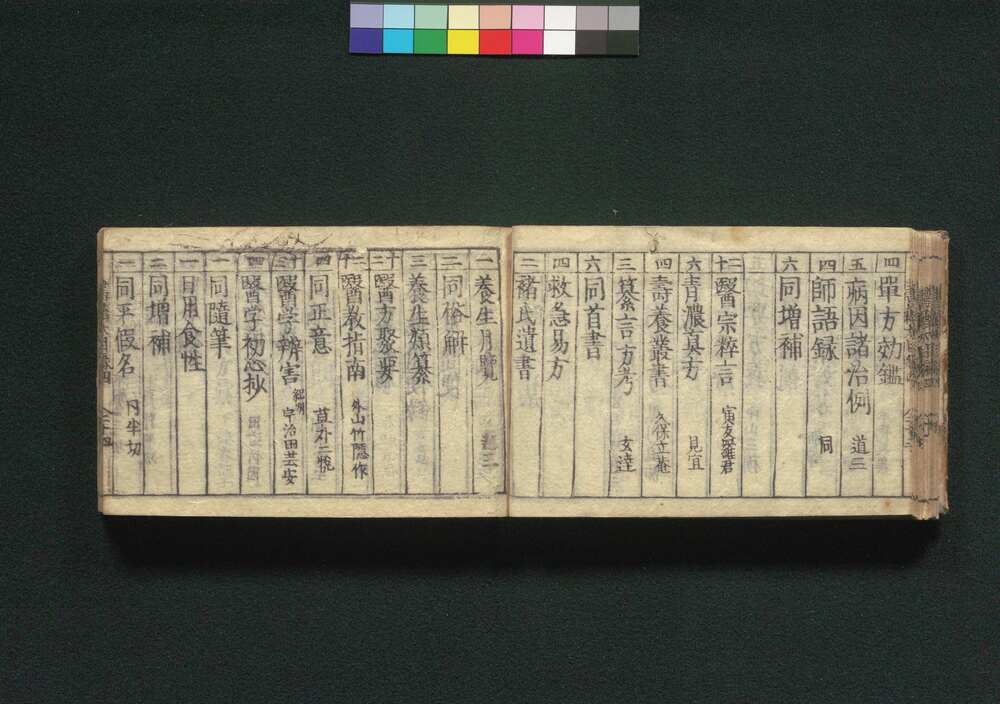 四 單方効鑑
五 病因諸治例 道三
四 師語録 同
六 同増補
十二 醫宗粹言 寅友羅君
六 青濃真方 見宜
四 壽養叢書 久保立菴
三 纂言方考 玄達
六 同首書
四 救急易方
二 褚氏遺書
一 養生月覽
二 同俗解
三 養生類纂
十三 醫方聚要
十二 醫教指南 外山竹隱作
四 同正意 草刈三悦
醫学辨害 紹朔 宇治田芸安
四 醫学初心抄
一 同隨筆
一 日用食性
二 同増補
一 同平假名 同半切